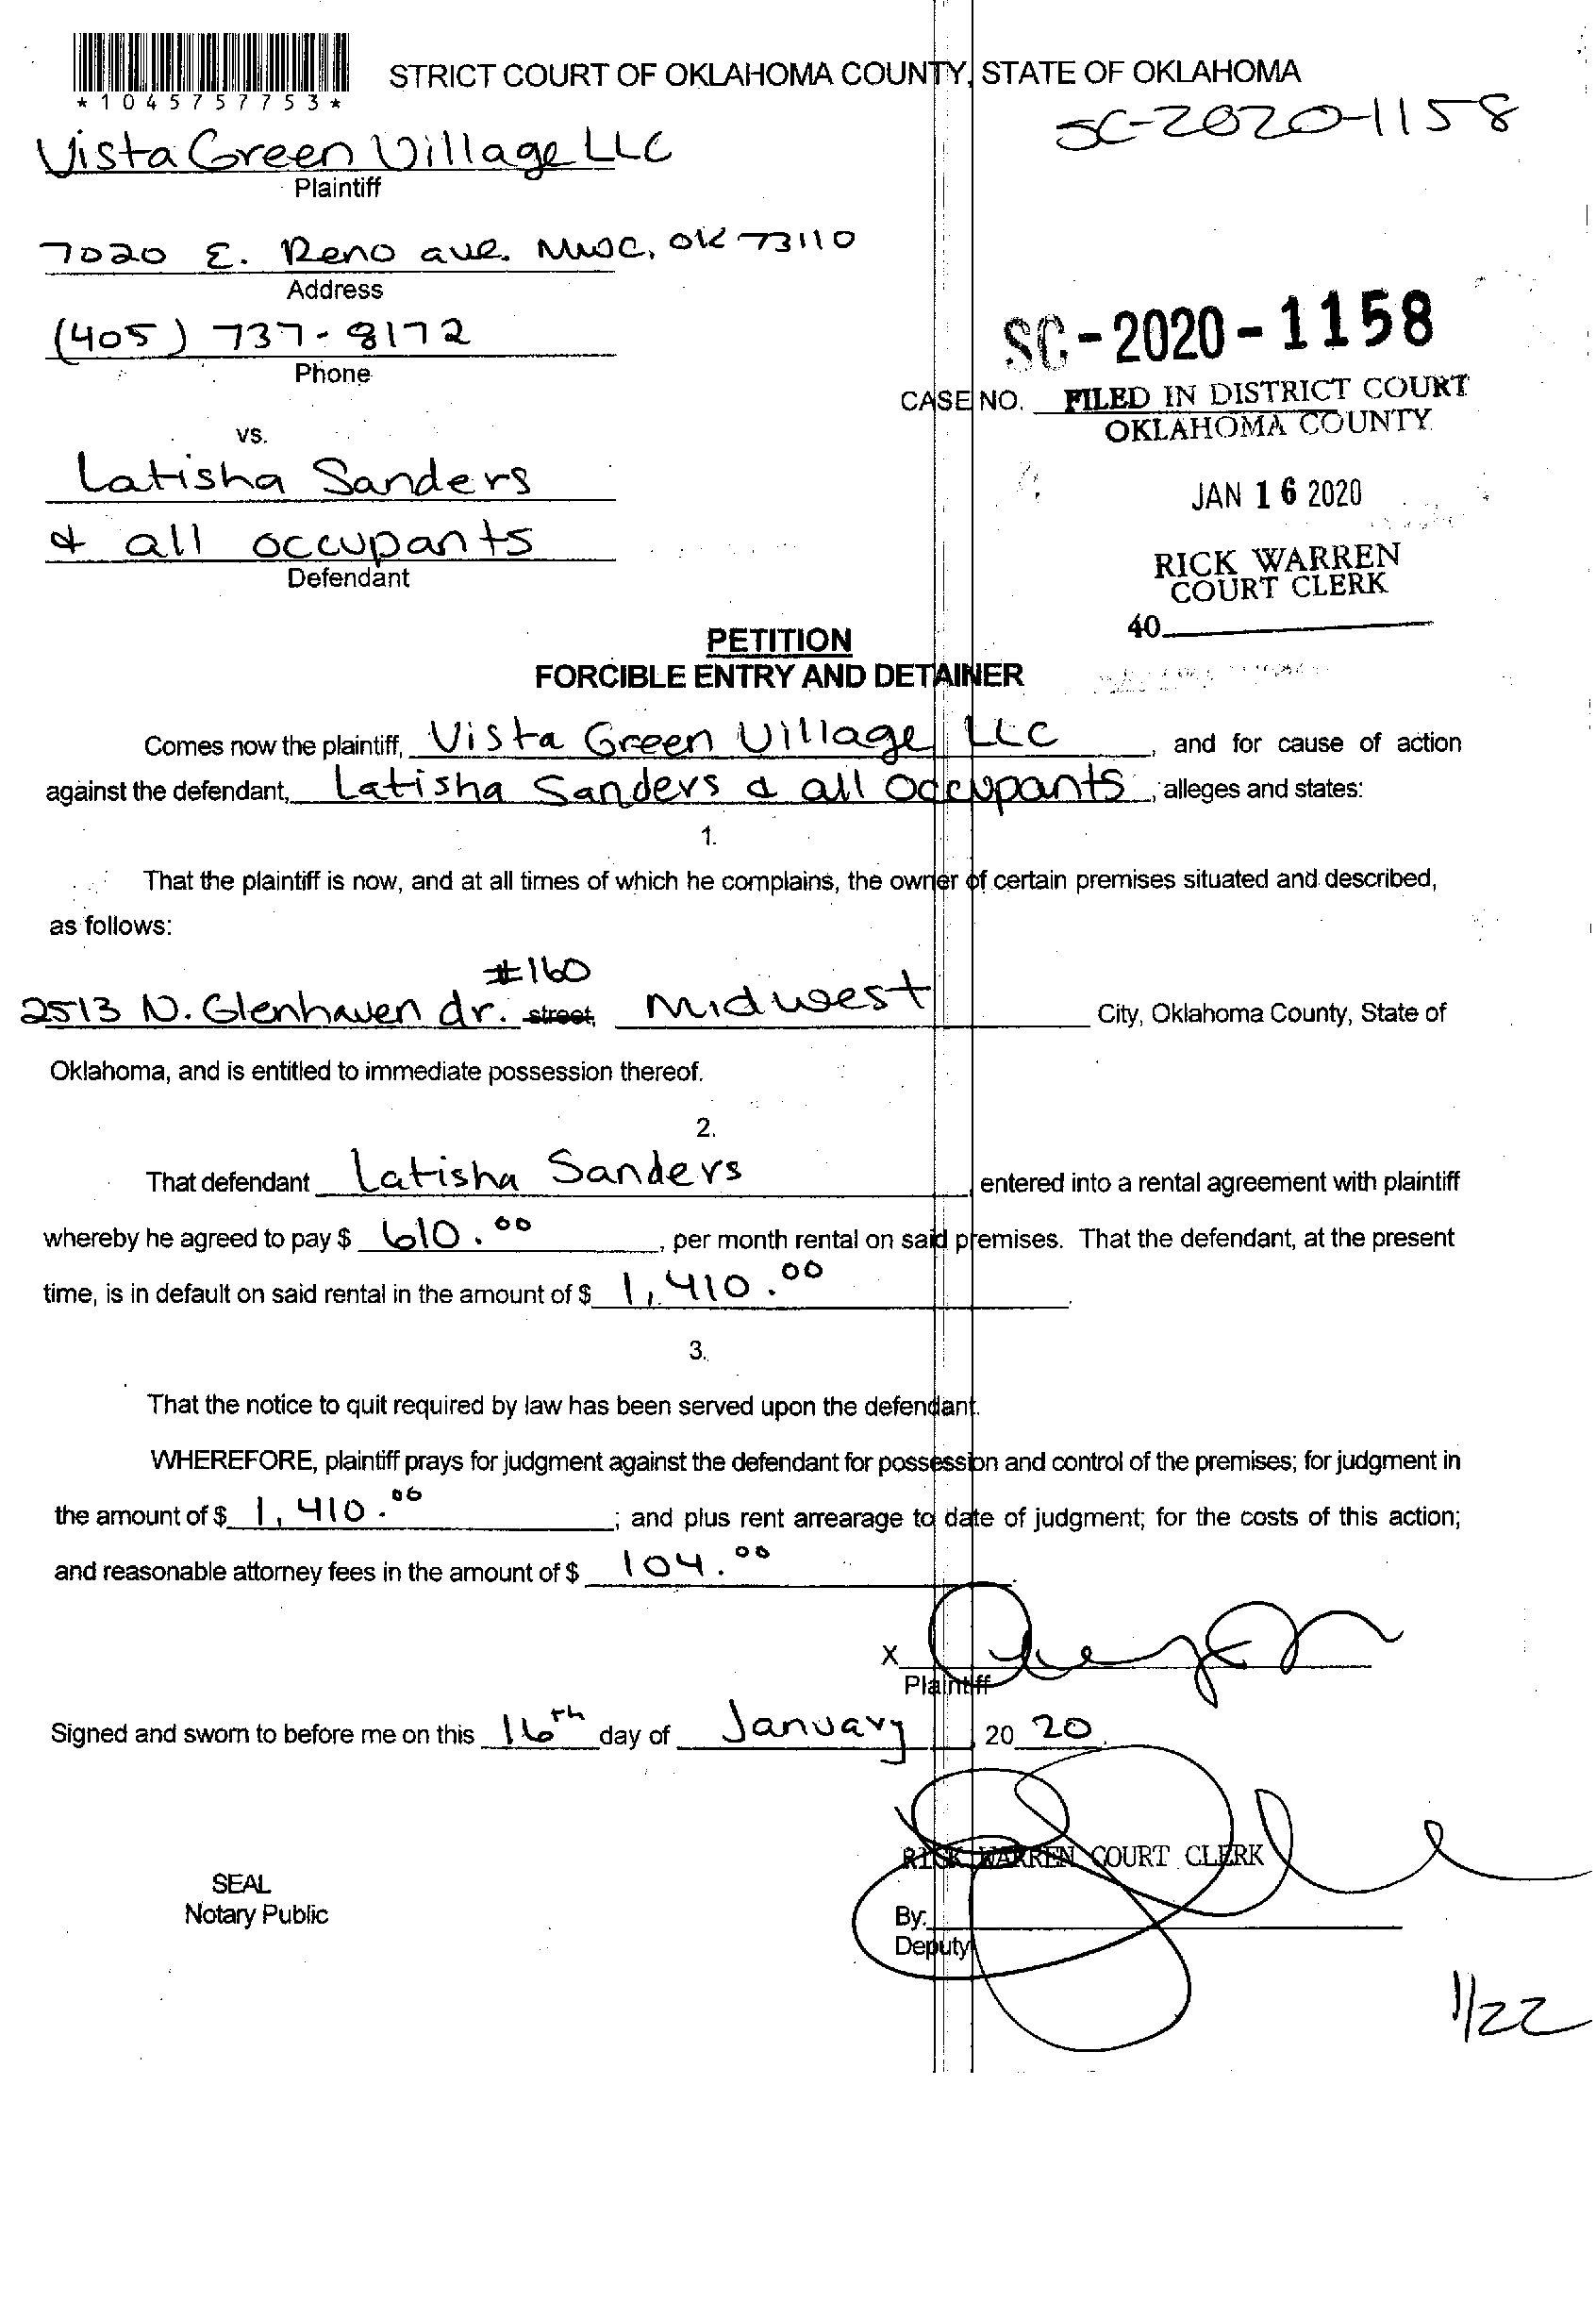 STRICT COURT OF OKLAHOMA COUNTY, STATE OF OKLAHOMA
*1045757753*
SC-2020-1158
Vista Green Village LLC
Plaintiff
7020 E. Reno ave. MWC, OK 73110
Address
(405) 737-8172
Phone
SC-2020-1158
CASE NO. FILED IN DISTRICT COURT
OKLAHOMA COUNTY
vs.
Latisha Sanders
JAN 16 2020
& all occupants
Defendant
RICK WARREN
COURT CLERK
40
PETITION
FORCIBLE ENTRY AND DETAINER
Comes now the plaintiff, Vista Green Village LLC, and for cause of action
against the defendant, Latisha Sanders & all occupants, alleges and states:
1.
That the plaintiff is now, and at all times of which he complains, the owner of certain premises situated and described,
as follows:
#160
2513 N. Glenhaven dr. street, Midwest City, Oklahoma County, State of
Oklahoma, and is entitled to immediate possession thereof.
2.
That defendant Latisha Sanders, entered into a rental agreement with plaintiff
whereby he agreed to pay $ 610.00, per month rental on said premises. That the defendant, at the present
time, is in default on said rental in the amount of $ 1,410.00.
3.
That the notice to quit required by law has been served upon the defendant.
WHEREFORE, plaintiff prays for judgment against the defendant for possession and control of the premises; for judgment in
the amount of $ 1,410.00; and plus rent arrearage to date of judgment; for the costs of this action;
and reasonable attorney fees in the amount of $ 104.00.
X
Plaintiff
Signed and sworn to before me on this 16th day of January, 20 20.
RICK WARREN COURT CLERK
SEAL
Notary Public
By:
Deputy
1/22